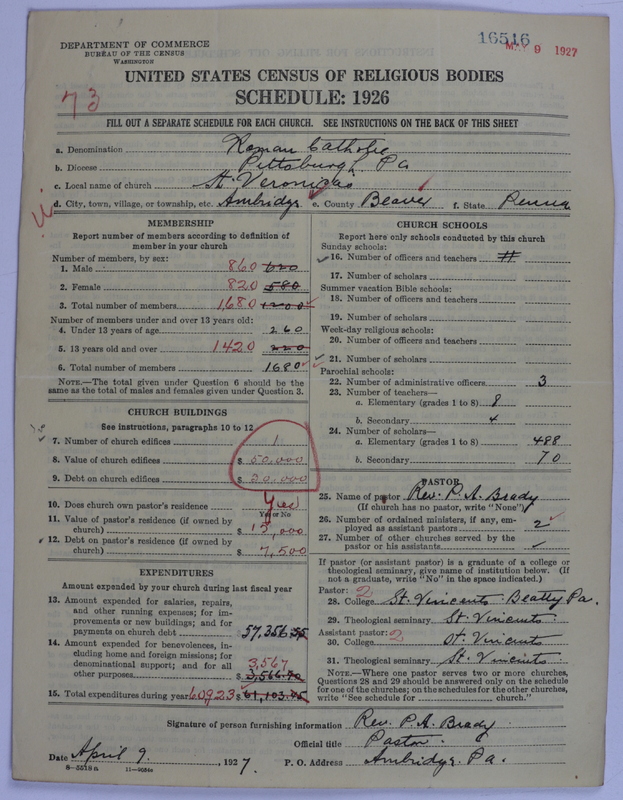 DEPARTMENT OF COMMERCE
BUREAU OF THE CENSUS
WASHINGTON
16516
MAY 9 1927
UNITED STATES CENSUS OF RELIGIOUS BODIES
SCHEDULE: 1926
73
FILL OUT A SEPARATE SCHEDULE FOR EACH CHURCH. SEE INSTRUCTIONS ON THE BACK OF THIS SHEET
a. Denomination Roman Catholic
b. Diocese Pittsburgh Pa
c. Local name of church St. Veronica's
d. City, town, village, or township, etc. Ambridge e. County Beaver f. State Penna
MEMBERSHIP
Report number of members according to definition of
member in your church
Number of members, by sex:
1. Male 860 620
2. Female 820 580
3. Total number of members 1,680 1200
Number of members under and over 13 years old:
4. Under 13 years of age 260
5. 13 years old and over 1420 220
6. Total number of members 1680
NOTE.—The total given under Question 6 should be the
same as the total of males and females given under Question 3.
CHURCH BUILDINGS
See instructions, paragraphs 10 to 12
7. Number of church edifices 1
8. Value of church edifices $ 50,000
9. Debt on church edifices $ 20,000
10. Does church own pastor's residence Yes
Yes or No
11. Value of pastor's residence (if owned by
church) $ 15,000
12. Debt on pastor's residence (if owned by
church) $ 7,500
EXPENDITURES
Amount expended by your church during last fiscal year
13. Amount expended for salaries, repairs,
and other running expenses; for im-
provements or new buildings; and for
payments on church debt 57,356.55
14. Amount expended for benevolences, in-
cluding home and foreign missions; for
denominational support; and for all
other purposes 3,567 3,566.70
15. Total expenditures during year 60923 $ 61,103.25
CHURCH SCHOOLS
Report here only schools conducted by this church
Sunday schools:
16. Number of officers and teachers
17. Number of scholars
Summer vacation Bible schools:
18. Number of officers and teachers
19. Number of scholars
Week-day religious schools:
20. Number of officers and teachers
21. Number of scholars
Parochial schools:
22. Number of administrative officers 3
23. Number of teachers—
a. Elementary (grades 1 to 8) 8
b. Secondary 4
24. Number of scholars—
a. Elementary (grades 1 to 8) 488
b. Secondary 70
PASTOR
25. Name of pastor Rev. P. A. Brady
(If church has no pastor, write "None")
26. Number of ordained ministers, if any, em-
ployed as assistant pastors 2
27. Number of other churches served by the
pastor or his assistants
If pastor (or assistant pastor) is a graduate of a college or
theological seminary, give name of institution below. (If
not a graduate, write "No" in the space indicated.)
Pastor: 2
28. College St. Vincents Beatty Pa.
29. Theological seminary St. Vincents
Assistant pastor: 2
30. College St. Vincents
31. Theological seminary St. Vincents
NOTE.—Where one pastor serves two or more churches,
Questions 28 and 29 should be answered only on the schedule
for one of the churches; on the schedules for the other churches,
write "See schedule for church."
Signature of person furnishing information Rev. P. A. Brady
Official title Pastor.
Date April 9, 1927. P. O. Address Ambridge, Pa.